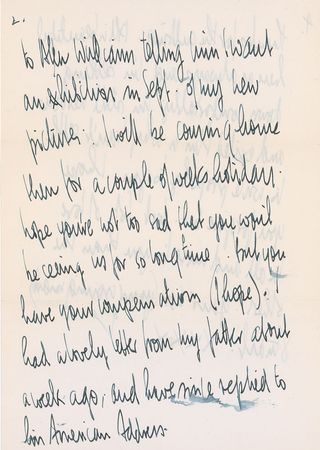 2.
to Alen Williams telling him I want
an exhibition in Sept. of my new
pictures. I will be coming home
then for a couple of weeks holiday.
hope you've not too sad that you won't
be seeing us for so long time. but you
have your compensations (I hope). I
had a lovely letter from my father about
a week ago, and have since replied to
him American Address.